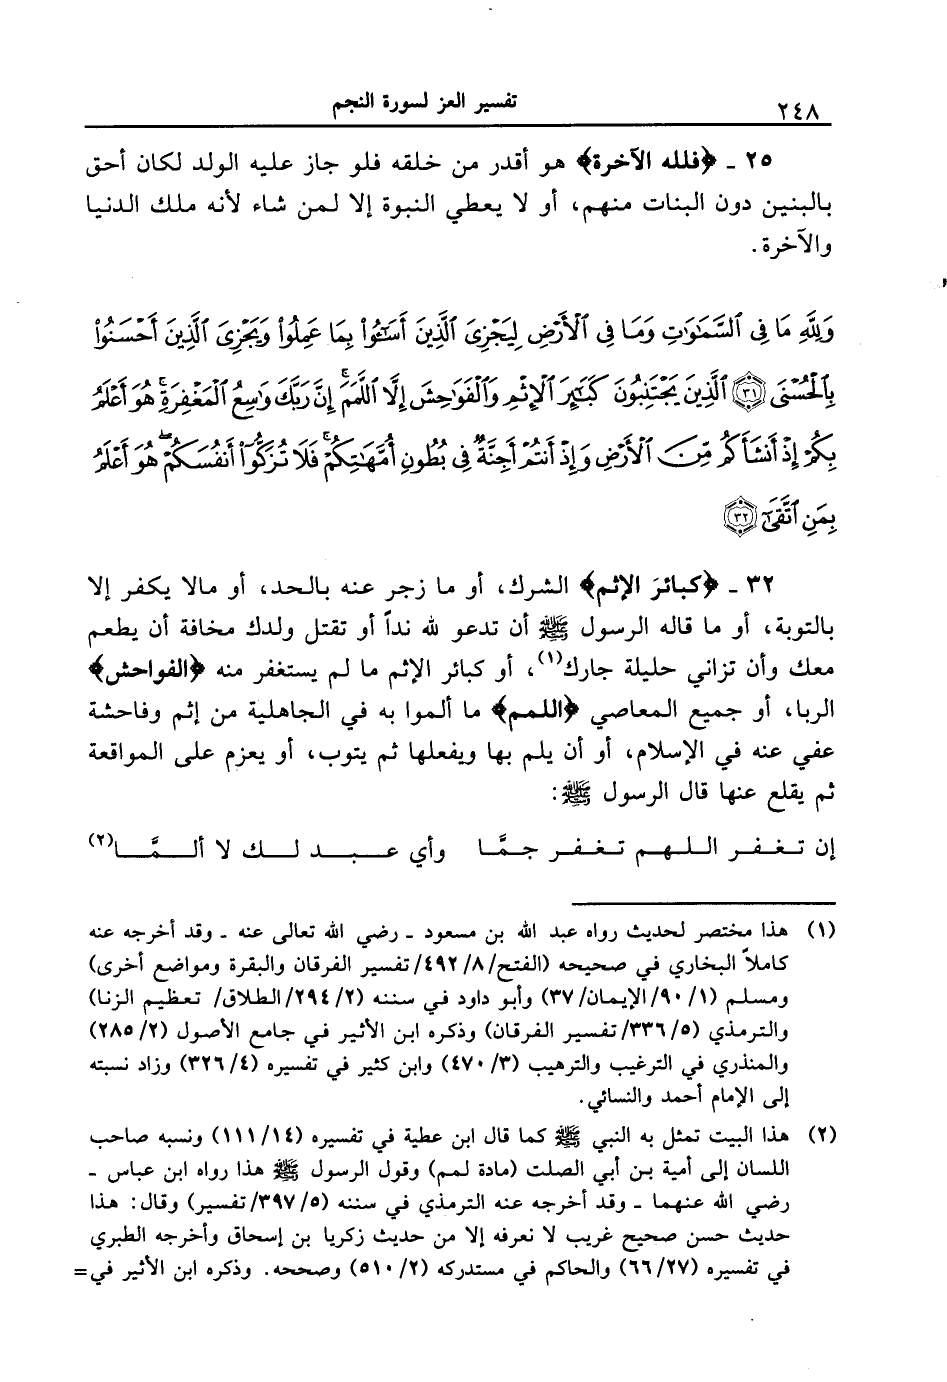 ٢٤٨
تفسير العز لسورة النجم
٢٥ - ﴿فلله الآخرة﴾ هو أقدر من خلقه فلو جاز عليه الولد لكان أحق
بالبنين دون البنات منهم، أو لا يعطي النبوة إلا لمن شاء لأنه ملك الدنيا
والآخرة.
وَلِلَّهِ مَا فِي ٱلسَّمَٰوَٰتِ وَمَا فِي ٱلْأَرْضِ لِيَجْزِيَ ٱلَّذِينَ أَسَٰٓـُٔوا۟ بِمَا عَمِلُوا۟ وَيَجْزِيَ ٱلَّذِينَ أَحْسَنُوا۟
بِٱلْحُسْنَى ٣١ ٱلَّذِينَ يَجْتَنِبُونَ كَبَٰٓئِرَ ٱلْإِثْمِ وَٱلْفَوَٰحِشَ إِلَّا ٱللَّمَمَ ۚ إِنَّ رَبَّكَ وَٰسِعُ ٱلْمَغْفِرَةِ ۚ هُوَ أَعْلَمُ
بِكُمْ إِذْ أَنشَأَكُم مِّنَ ٱلْأَرْضِ وَإِذْ أَنتُمْ أَجِنَّةٌ فِي بُطُونِ أُمَّهَٰتِكُمْ ۖ فَلَا تُزَكُّوٓا۟ أَنفُسَكُمْ ۖ هُوَ أَعْلَمُ
بِمَنِ ٱتَّقَىٰٓ ٣٢
٣٢ - ﴿كبائرَ الإثم﴾ الشرك، أو ما زجر عنه بالحد، أو مالا يكفر إلا
بالتوبة، أو ما قاله الرسول ﷺ أن تدعو لله نداً أو تقتل ولدك مخافة أن يطعم
معك وأن تزاني حليلة جارك(١)، أو كبائر الإثم ما لم يستغفر منه ﴿الفواحش﴾
الربا، أو جميع المعاصي ﴿اللمم﴾ ما ألموا به في الجاهلية من إثم وفاحشة
عفي عنه في الإسلام، أو أن يلم بها ويفعلها ثم يتوب، أو يعزم على المواقعة
ثم يقلع عنها قال الرسول ﷺ:
إن تـغـفـر الـلـهـم تـغـفـر جـمَّـا وأي عـبـد لـك لا ألـمَّـا(٢)
(١) هذا مختصر لحديث رواه عبد الله بن مسعود - رضي الله تعالى عنه - وقد أخرجه عنه
كاملاً البخاري في صحيحه (الفتح/٨/٤٩٢/تفسير الفرقان والبقرة ومواضع أخرى)
ومسلم (١/٩٠/الإيمان/٣٧) وأبو داود في سننه (٢/٢٩٤/الطلاق/ تعظيم الزنا)
والترمذي (٥/٣٣٦/تفسير الفرقان) وذكره ابن الأثير في جامع الأصول (٢/٢٨٥)
والمنذري في الترغيب والترهيب (٣/٤٧٠) وابن كثير في تفسيره (٤/٣٢٦) وزاد نسبته
إلى الإمام أحمد والنسائي.
(٢) هذا البيت تمثل به النبي ﷺ كما قال ابن عطية في تفسيره (١٤/١١١) ونسبه صاحب
اللسان إلى أمية بن أبي الصلت (مادة لمم) وقول الرسول ﷺ هذا رواه ابن عباس -
رضي الله عنهما - وقد أخرجه عنه الترمذي في سننه (٥/٣٩٧/تفسير) وقال: هذا
حديث حسن صحيح غريب لا نعرفه إلا من حديث زكريا بن إسحاق وأخرجه الطبري
في تفسيره (٢٧/٦٦) والحاكم في مستدركه (٢/٥١٠) وصححه. وذكره ابن الأثير في=